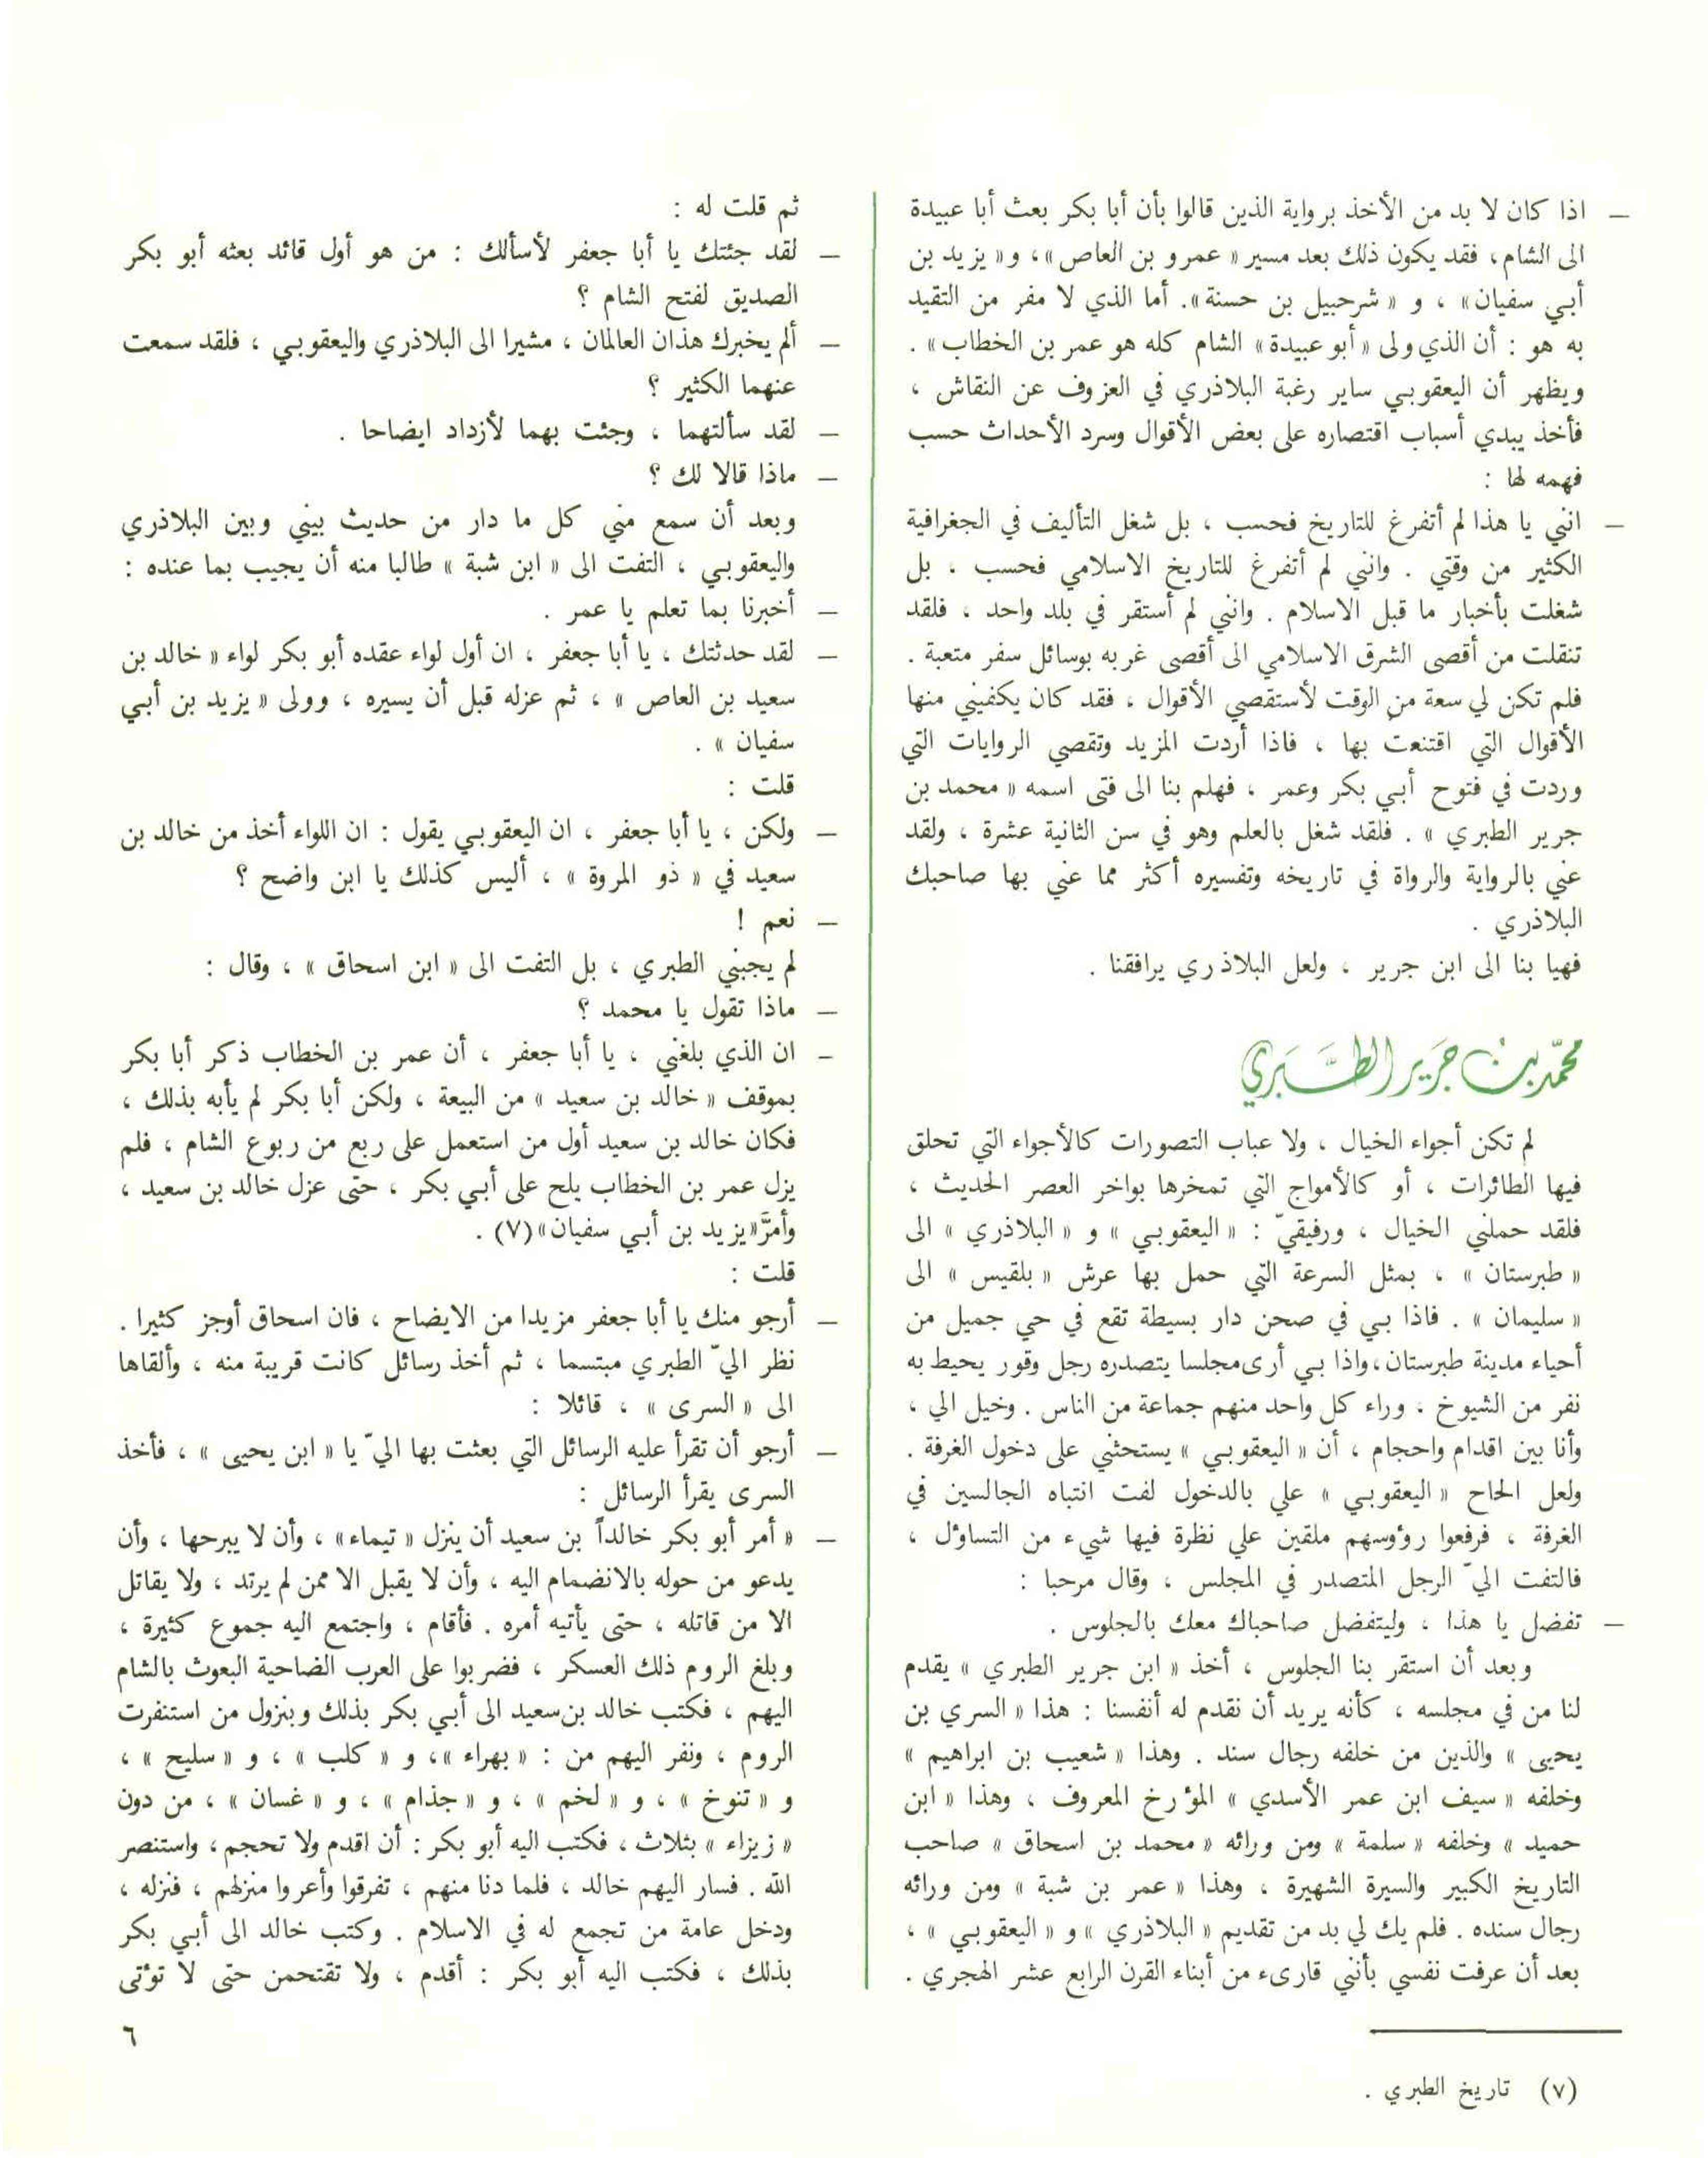 — اذا كان لا بد من الأخذ برواية الذين قالوا بأن أبا بكر بعث أبا عبيدة
الى الشام، فقد يكون ذلك بعد مسير « عمرو بن العاص »، و« يزيد بن
أبي سفيان» ، و « شرحبيل بن حسنة». أما الذي لا مفر من التقيد
به هو : أن الذي ولى « أبو عبيدة» الشام كله هو عمر بن الخطاب» .
ويظهر أن اليعقوبي ساير رغبة البلاذري في العزوف عن النقاش ،
فأخذ يبدي أسباب اقتصاره على بعض الأقوال وسرد الأحداث حسب
فهمه لها :
— انني يا هذا لم أتفرغ للتاريخ فحسب ، بل شغل التأليف في الجغرافية
الكثير من وقتي . وانني لم أتفرغ للتاريخ الاسلامي فحسب ، بل
شغلت بأخبار ما قبل الاسلام . وانني لم أستقر في بلد واحد ، فلقد
تنقلت من أقصى الشرق الاسلامي الى أقصى غربه بوسائل سفر متعبة .
فلم تكن لي سعة من الوقت لأستقصي الأقوال ، فقد كان يكفيني منها
الأقوال التي اقتنعت بها ، فاذا أردت المزيد وتقصي الروايات التي
وردت في فتوح أبي بكر وعمر ، فهلم بنا الى فتى اسمه « محمد بن
جرير الطبري » . فلقد شغل بالعلم وهو في سن الثانية عشرة ، ولقد
عني بالرواية والرواة في تاريخه وتفسيره أكثر مما عني بها صاحبك
البلاذري .
فهيا بنا الى ابن جرير ، ولعل البلاذري يرافقنا .
محمّد بن جَرير الطَّبَري
لم تكن أجواء الخيال ، ولا عباب التصورات كالأجواء التي تحلق
فيها الطائرات ، أو كالأمواج التي تمخرها بواخر العصر الحديث ،
فلقد حملني الخيال ، ورفيقيّ : « اليعقوبي » و « البلاذري » الى
« طبرستان » ، بمثل السرعة التي حمل بها عرش « بلقيس » الى
« سليمان » . فاذا بي في صحن دار بسيطة تقع في حي جميل من
أحياء مدينة طبرستان،واذا بي أرى مجلسا يتصدره رجل وقور يحيط به
نفر من الشيوخ ، وراء كل واحد منهم جماعة من الناس . وخيل الي ،
وأنا بين اقدام واحجام ، أن « اليعقوبي » يستحثني على دخول الغرفة .
ولعل الحاح « اليعقوبي » علي بالدخول لفت انتباه الجالسين في
الغرفة ، فرفعوا رؤوسهم ملقين علي نظرة فيها شيء من التساؤل ،
فالتفت اليّ الرجل المتصدر في المجلس ، وقال مرحبا :
— تفضل يا هذا ، وليتفضل صاحباك معك بالجلوس .
وبعد أن استقر بنا الجلوس ، أخذ « ابن جرير الطبري » يقدم
لنا من في مجلسه ، كأنه يريد أن نقدم له أنفسنا : هذا « السري بن
يحيى » والذين من خلفه رجال سند . وهذا « شعيب بن ابراهيم »
وخلفه « سيف ابن عمر الأسدي » المؤرخ المعروف ، وهذا « ابن
حميد » وخلفه « سلمة » ومن ورائه « محمد بن اسحاق » صاحب
التاريخ الكبير والسيرة الشهيرة ، وهذا « عمر بن شبة » ومن ورائه
رجال سنده . فلم يك لي بد من تقديم « البلاذري » و « اليعقوبي » ،
بعد أن عرفت نفسي بأنني قارىء من أبناء القرن الرابع عشر الهجري .
ثم قلت له :
— لقد جئتك يا أبا جعفر لأسألك : من هو أول قائد بعثه أبو بكر
الصديق لفتح الشام ؟
— ألم يخبرك هذان العالمان ، مشيرا الى البلاذري واليعقوبي ، فلقد سمعت
عنهما الكثير ؟
— لقد سألتهما ، وجئت بهما لأزداد ايضاحا .
— ماذا قالا لك ؟
وبعد أن سمع مني كل ما دار من حديث بيني وبين البلاذري
واليعقوبي ، التفت الى « ابن شبة » طالبا منه أن يجيب بما عنده :
— أخبرنا بما تعلم يا عمر .
— لقد حدثتك ، يا أبا جعفر ، ان أول لواء عقده أبو بكر لواء « خالد بن
سعيد بن العاص » ، ثم عزله قبل أن يسيره ، وولى « يزيد بن أبي
سفيان » .
قلت :
— ولكن ، يا أبا جعفر ، ان اليعقوبي يقول : ان اللواء أخذ من خالد بن
سعيد في « ذو المروة » ، أليس كذلك يا ابن واضح ؟
— نعم !
لم يجبني الطبري ، بل التفت الى « ابن اسحاق » ، وقال :
— ماذا تقول يا محمد ؟
— ان الذي بلغني ، يا أبا جعفر ، أن عمر بن الخطاب ذكر أبا بكر
بموقف « خالد بن سعيد » من البيعة ، ولكن أبا بكر لم يأبه بذلك ،
فكان خالد بن سعيد أول من استعمل على ربع من ربوع الشام ، فلم
يزل عمر بن الخطاب يلح على أبي بكر ، حتى عزل خالد بن سعيد ،
وأمرَّ«يزيد بن أبي سفيان»(٧) .
قلت :
— أرجو منك يا أبا جعفر مزيدا من الايضاح ، فان اسحاق أوجز كثيرا .
نظر اليّ الطبري مبتسما ، ثم أخذ رسائل كانت قريبة منه ، وألقاها
الى « السرى » ، قائلا :
— أرجو أن تقرأ عليه الرسائل التي بعثت بها اليّ يا « ابن يحيى » ، فأخذ
السرى يقرأ الرسائل :
— « أمر أبو بكر خالداً بن سعيد أن ينزل « تيماء» ، وأن لا يبرحها ، وأن
يدعو من حوله بالانضمام اليه ، وأن لا يقبل الا ممن لم يرتد ، ولا يقاتل
الا من قاتله ، حتى يأتيه أمره . فأقام ، واجتمع اليه جموع كثيرة ،
وبلغ الروم ذلك العسكر ، فضربوا على العرب الضاحية البعوث بالشام
اليهم ، فكتب خالد بن سعيد الى أبي بكر بذلك وبنزول من استنفرت
الروم ، ونفر اليهم من : « بهراء »، و « كلب » ، و « سليح » ،
و « تنوخ » ، و « لخم » ، و « جذام » ، و « غسان » ، من دون
« زيزاء » بثلاث ، فكتب اليه أبو بكر : أن اقدم ولا تحجم، واستنصر
الله . فسار اليهم خالد ، فلما دنا منهم ، تفرقوا وأعروا منزلهم ، فنزله ،
ودخل عامة من تجمع له في الاسلام . وكتب خالد الى أبي بكر
بذلك ، فكتب اليه أبو بكر : أقدم ، ولا تقتحمن حتى لا تؤتى
٦
(٧) تاريخ الطبري .